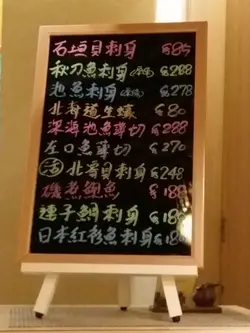 石垣貝刺身 $85
秋刀魚刺身 $288
池魚刺身 $278
北海道生蠔 $80
深海池魚薄切 $288
左口魚薄切 $270
活 北寄貝刺身 $248
磯煮鮑魚 $188
連子鯛刺身 $18
日本紅衫魚刺身 $18